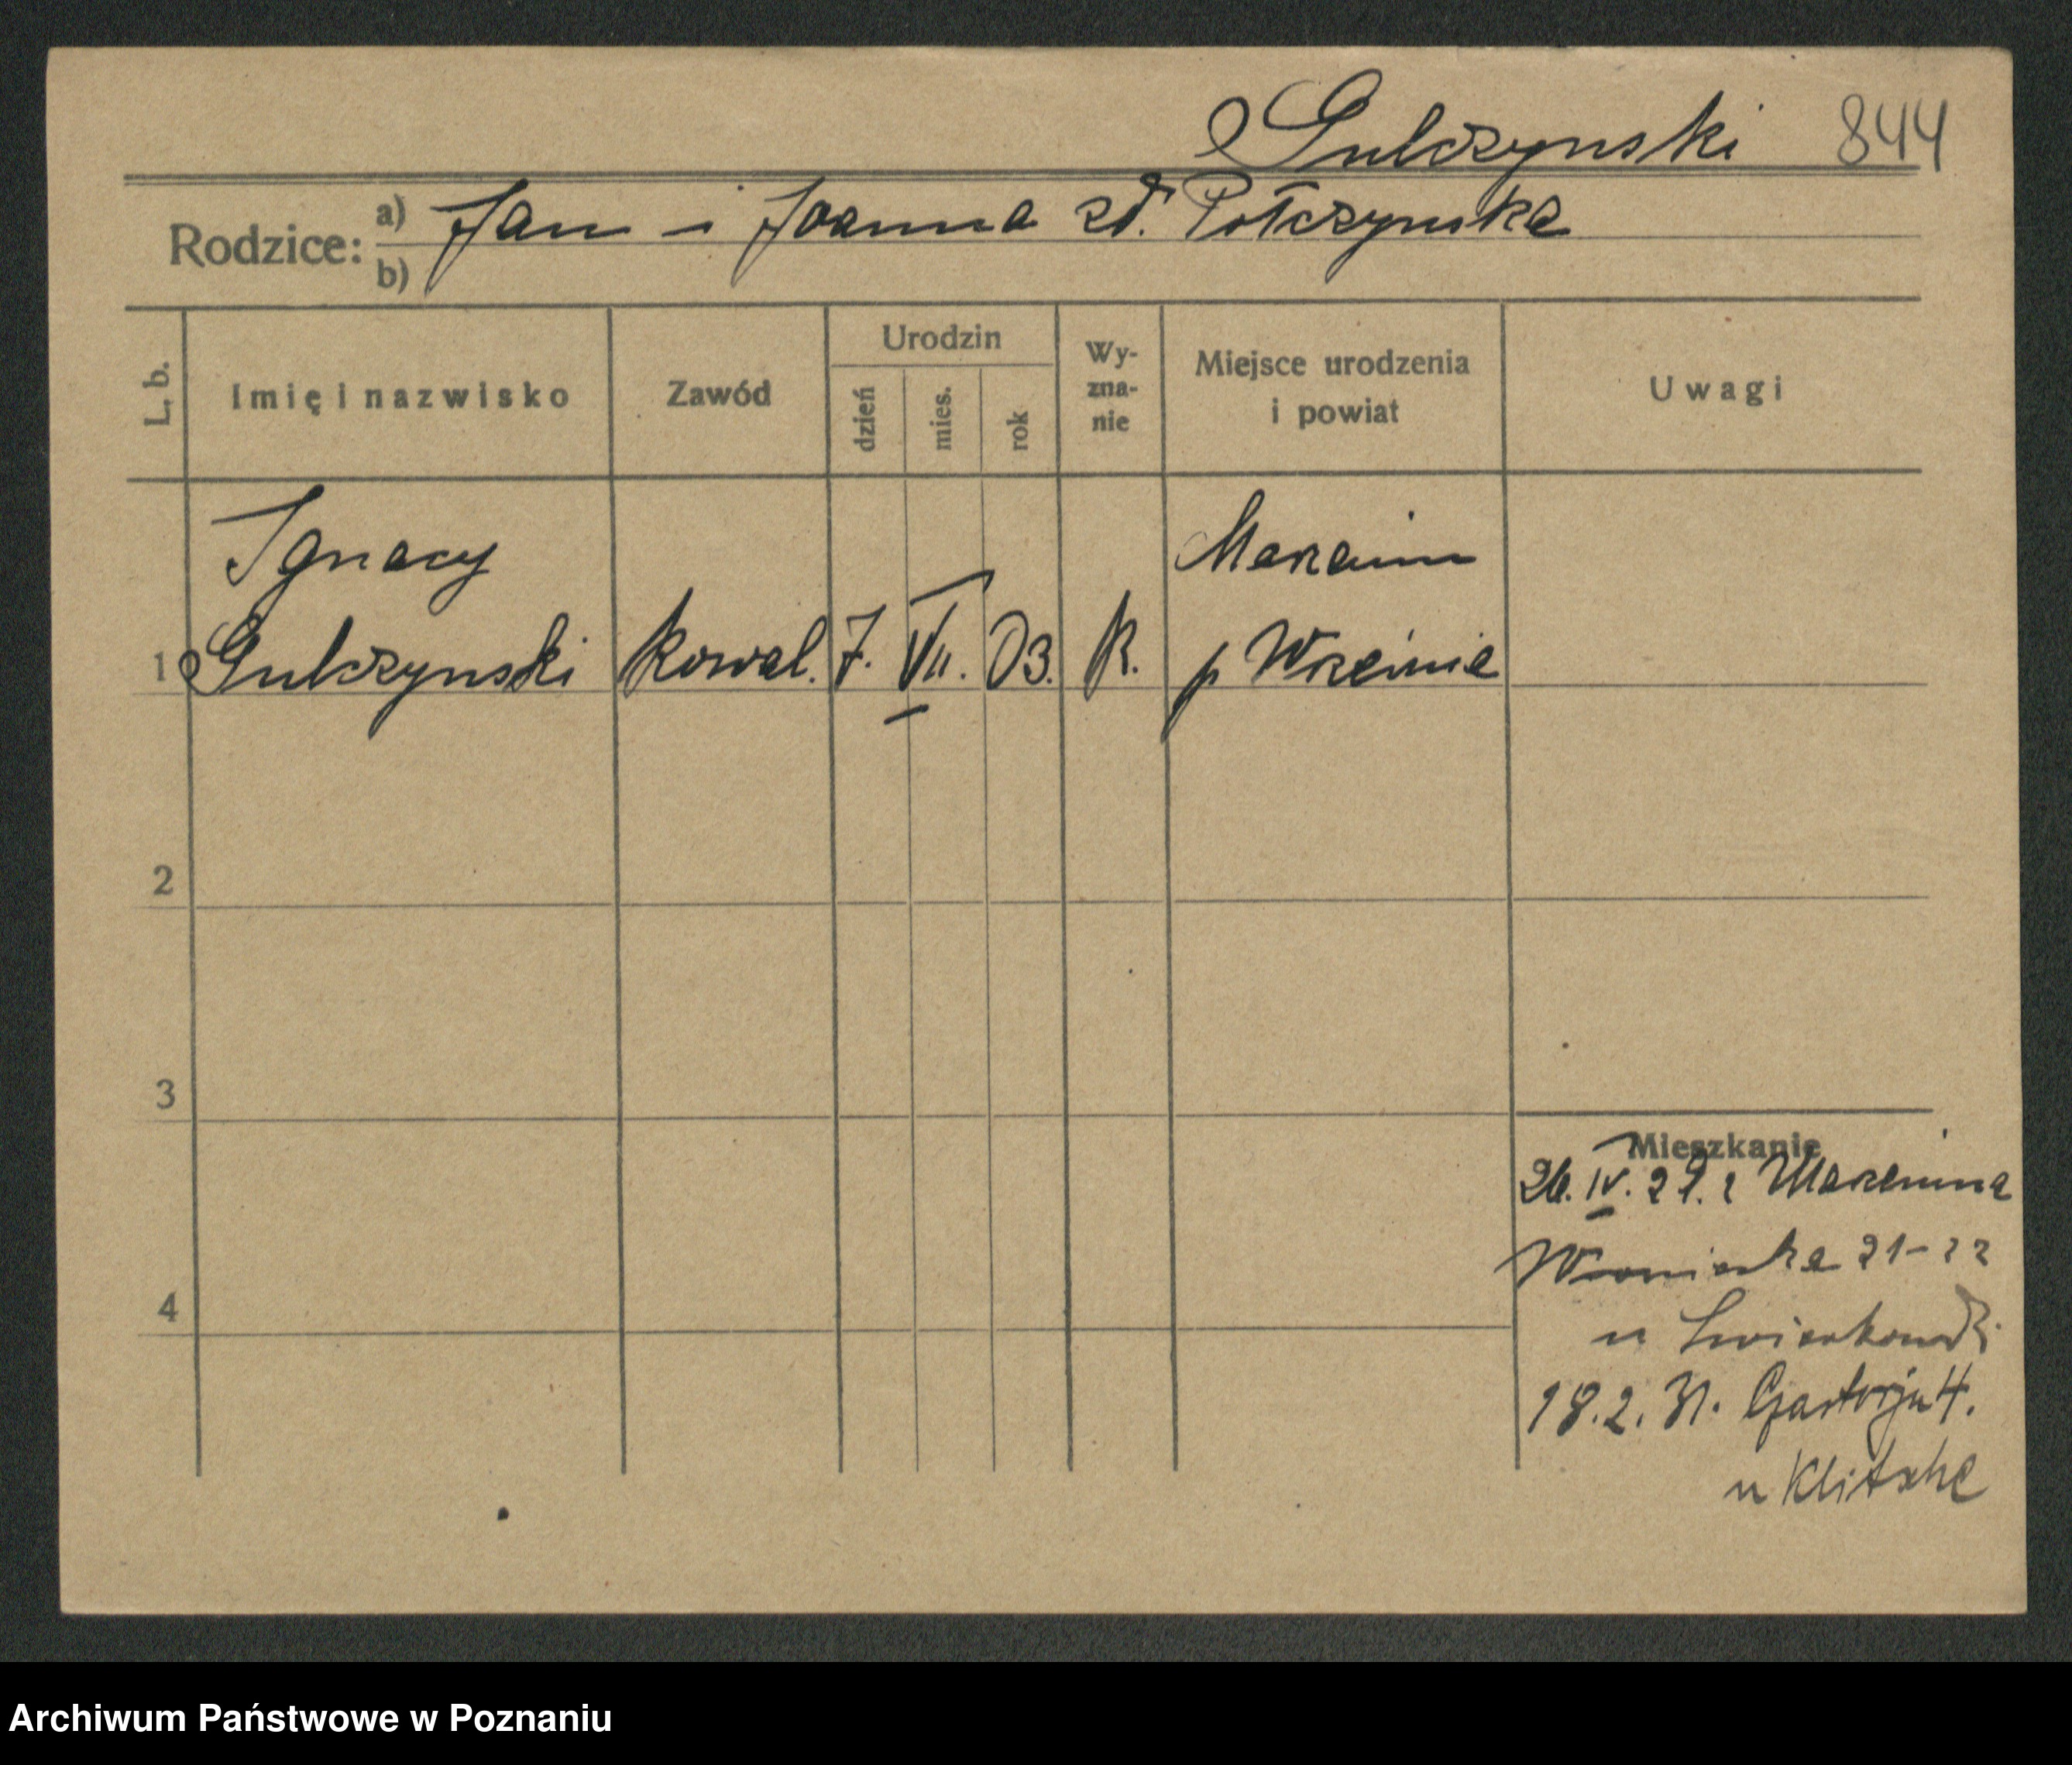 Gulczynski 844
Rodzice: a) Jan i Joanna zd. Połczynska
b)
L. b. Imię i nazwisko Zawód Urodzin dzień mies. rok Wy-zna-nie Miejsce urodzenia i powiat Uwagi
Ignacy Marzenin
1 Gulczynski kowal. 7. VII. 03. K. p Wrześnie
2
3
Mieszkanie
26. IV. 29. z Marzenina
Wroniecka 21-22
4
u
18.2.31. 4.
u Klitsche
Archiwum Państwowe w Poznaniu